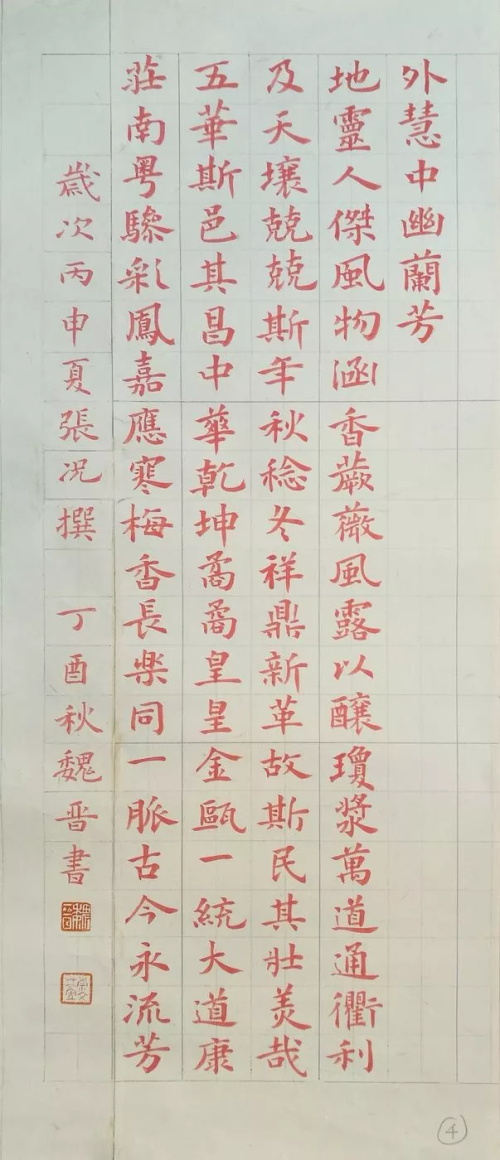 外慧中幽蘭芳
地靈人傑風物涵香蕨薇風露以釀瓊漿萬道通衢利
及天壤兢兢斯年秋稔冬祥鼎新革故斯民其壯美哉
五華斯邑其昌中華乾坤矞矞皇皇金甌一統大道康
莊南粵驂彩鳳嘉應寒梅香長樂同一脈古今永流芳
歲次丙申夏張况撰 丁酉秋魏晋書
4